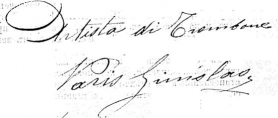 Artista di Trombone
Paris Ginislao